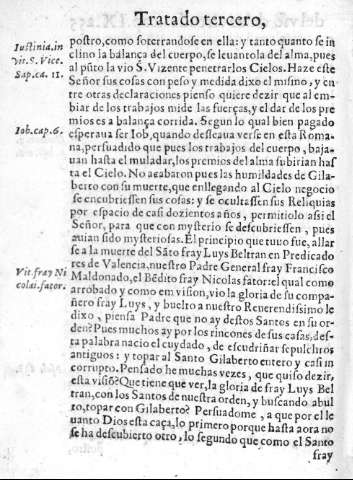 Tratado tercero,
Iustinia.in
vit.S. Vice.
Sap.ca. 11.
Iob.cap.6.
Vit.fray Ni
colai.fator.
postro, como soterrandose en ella: y tanto quanto se in
clino la balança del cuerpo, se leuantola del alma, pues
al pũto la vio S. Vizente penetrarlos Cielos. Haze este
Señor sus cosas con peso y medida dixo el mismo, y en
tre otras declaraciones pienso quiere dezir que al em-
biar de los trabajos mide las fuerças, y el dar de los pre
mios es a balança corrida. Segun lo qual bien pagado
esperaua ser Iob, quando desseaua verse en esta Roma-
na, persuadido que pues los trabajos del cuerpo, baja-
uan hasta el muladar, los premios del alma subirian has
ta el Cielo. No acabaron pues las humildades de Gila-
berto con su muerte, que en llegando al Cielo negocio
se encubriessen sus cosas: y se ocultassen sus Reliquias
por espacio de casi dozientos años, permitiolo assi el
Señor, para que con mysterio se descubriessen, pues
auian sido mysteriosas. El principio que tuuo fue, allar
se a la muerte del Sãto fray Luys Beltran en Predicado
res de Valencia, nuestro Padre General fray Francisco
Maldonado, el Bẽdito fray Nicolas fator: el qual como
arrobado y como em vision, vio la gloria de su compa-
ñero fray Luys, y buelto a nuestro Reuerendissimo le
dixo, piensa Padre que no ay destos Santos en su or-
den? Pues muchos ay por los rincones de sus casas, des-
ta palabra nacio el cuydado, de escudriñar sepulchros
antiguos: y topar al Santo Gilaberto entero y casi in
corrupto. Pensado he muchas vezes, que quiso dezir,
esta visiõ? Que tiene que ver, la gloria de fray Luys Bel
tran, con los Santos de nuestra orden, y buscando abul
to, topar con Gilaberto? Persuadome, a que por el le
uanto Dios esta caça, lo primero porque hasta aora no
se ha descubierto otro, lo segundo que como el Santo
fray